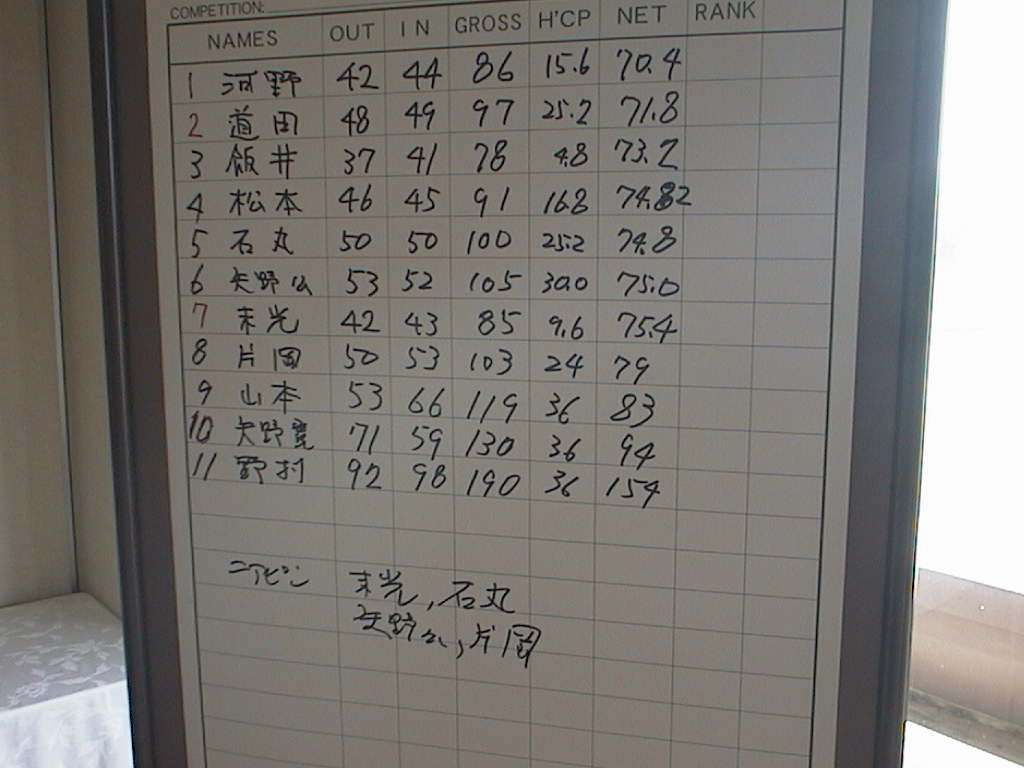 COMPETITION:
NAMES OUT IN GROSS H'CP NET RANK
1 河野 42 44 86 15.6 70.4
2 道田 48 49 97 25.2 71.8
3 飯井 37 41 78 4.8 73.2
4 松本 46 45 91 16.8 74.2
5 石丸 50 50 100 25.2 74.8
6 矢野公 53 52 105 30.0 75.0
7 末光 42 43 85 9.6 75.4
8 片岡 50 53 103 24 79
9 山本 53 66 119 36 83
10 矢野寛 71 59 130 36 94
11 野村 92 98 190 36 154
ニアピン 末光,石丸
矢野公,片岡